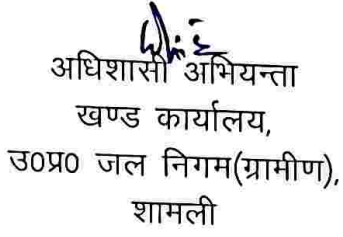 अधिशासी अभियन्ता
खण्ड कार्यालय,
उ0प्र0 जल निगम(ग्रामीण),
शामली